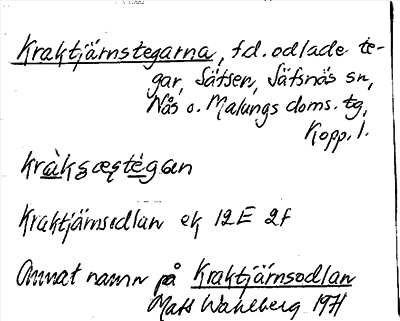 Kraktjärnstegarna, f.d. odlade te-
gar, Säfsen, Säfsnäs sn,
Nås o. Malungs doms. tg,
Kopp. l.
kràkʂæʂtègan
Kraktjärnsodlan ek 12E 2f
Annat namn på Kraktjärnsodlan
Mats Wahlberg 1971